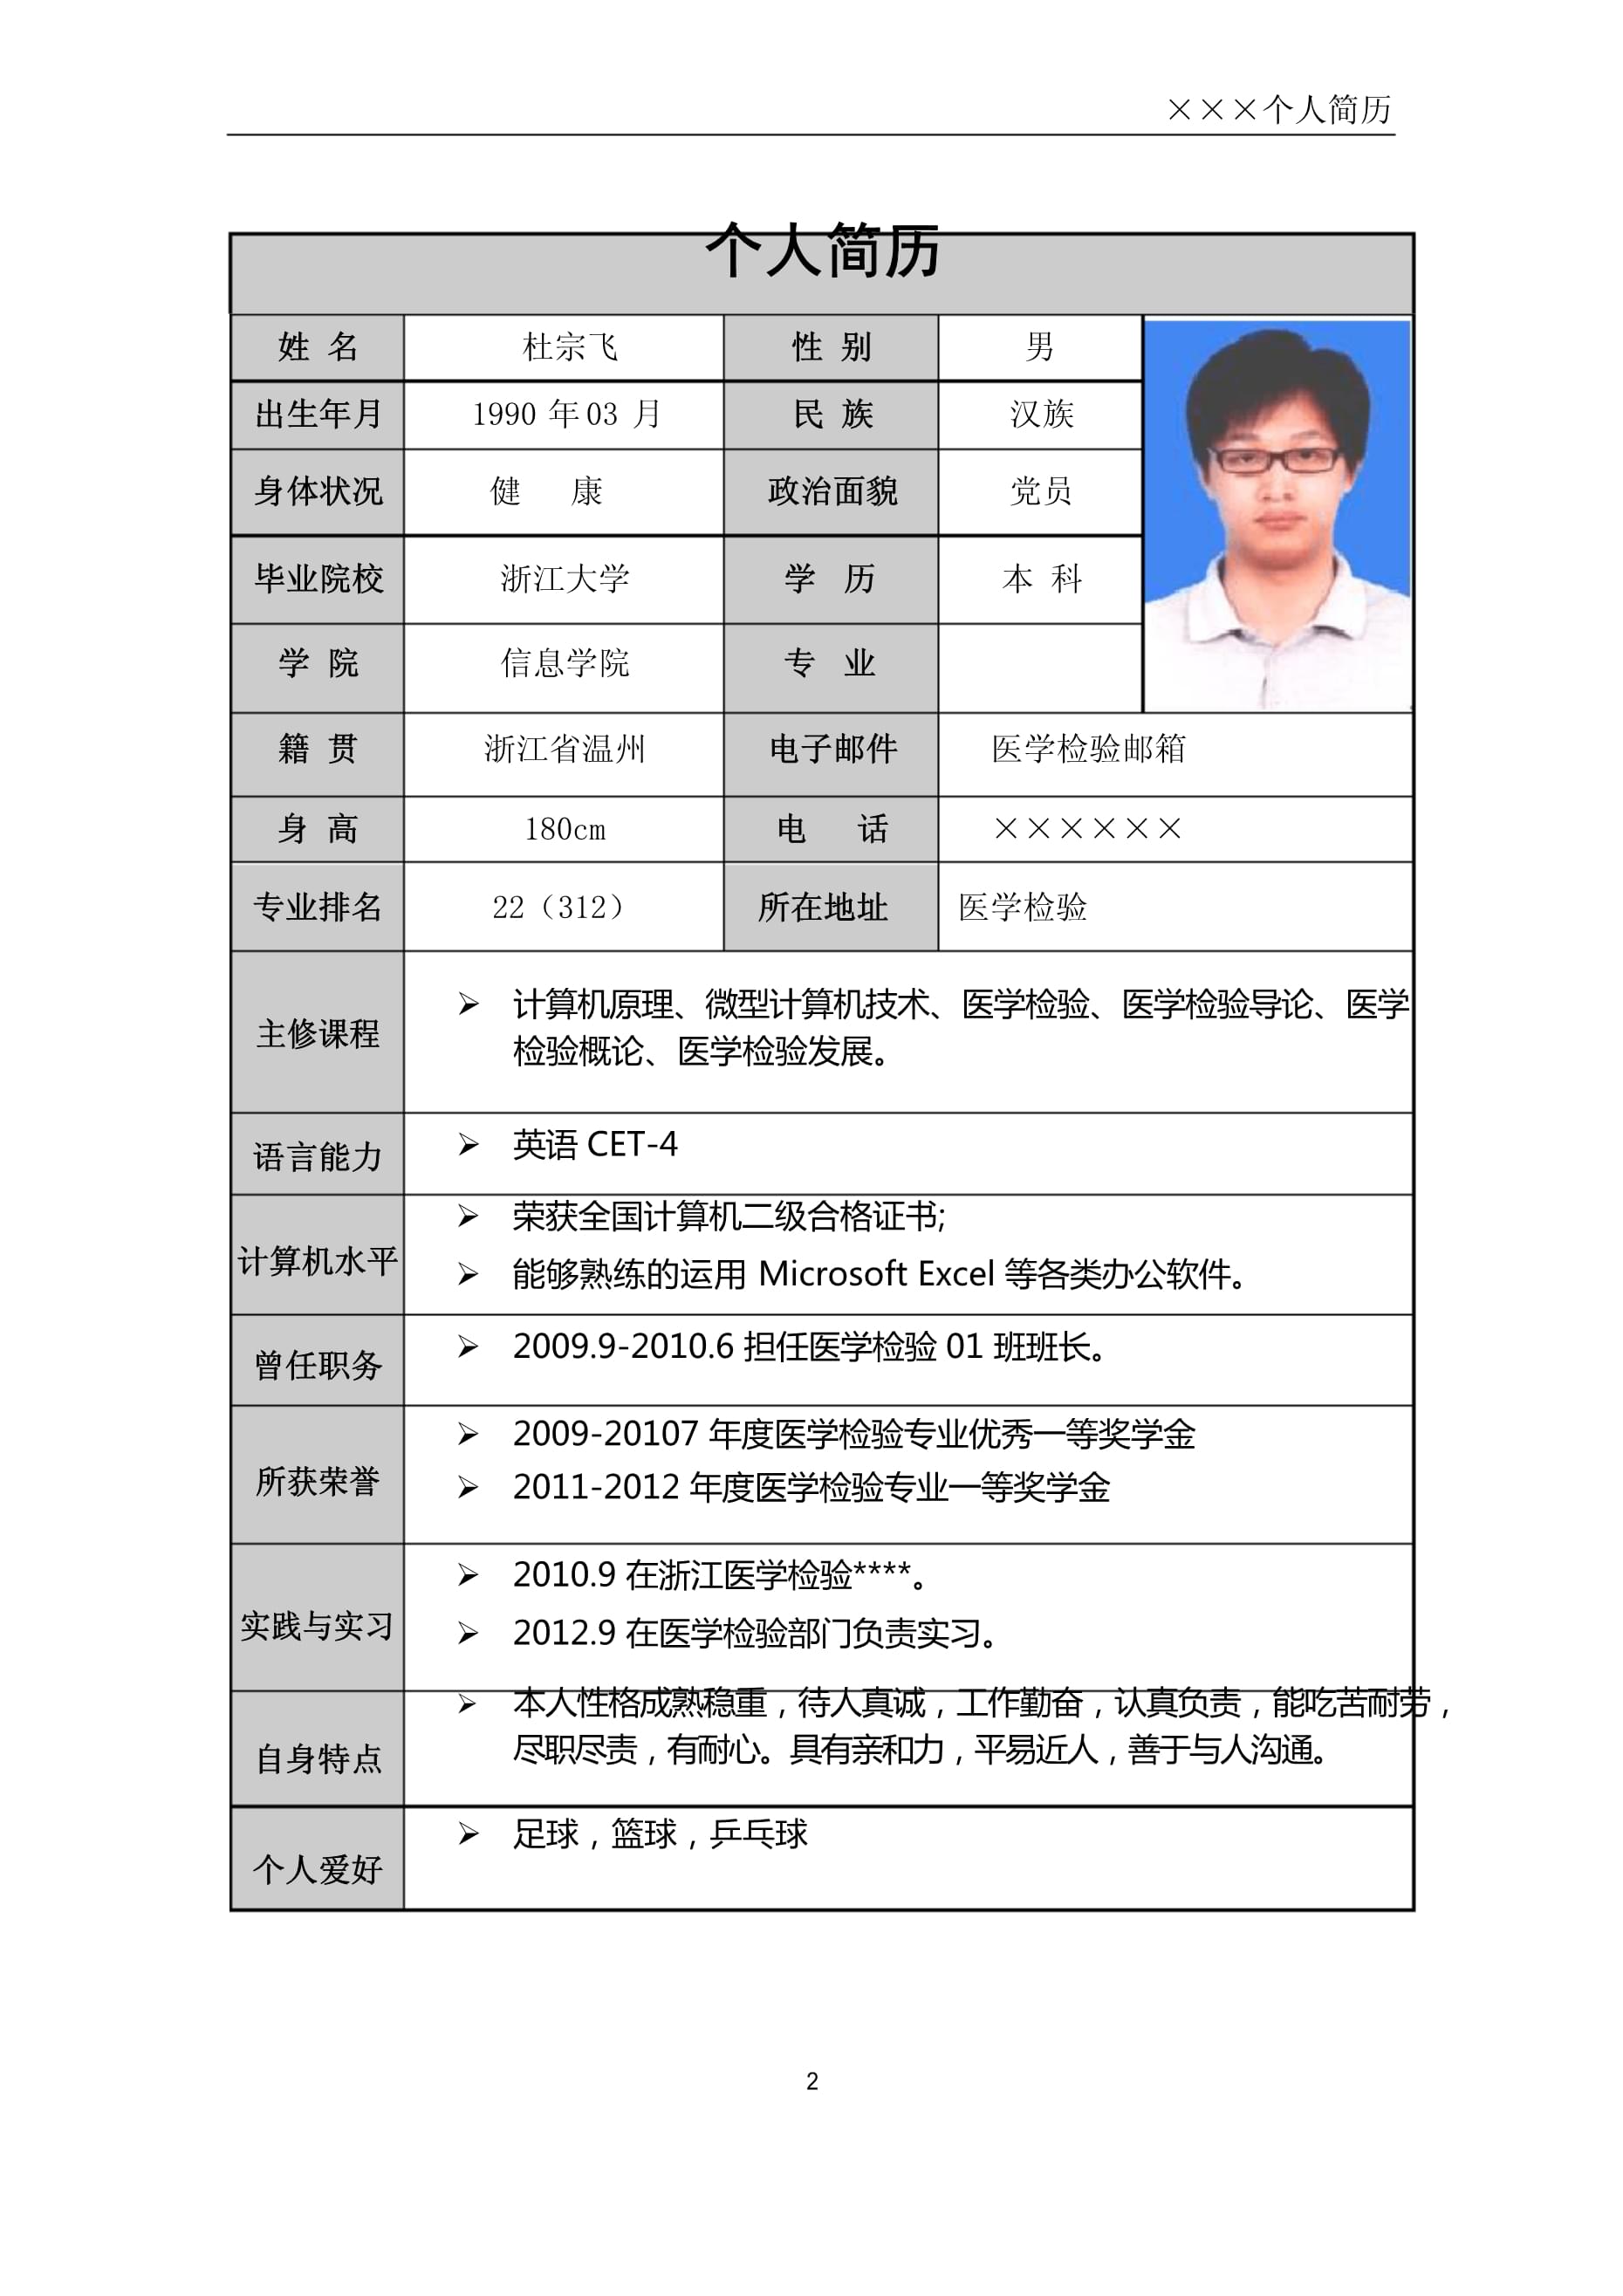 ×××个人简历
个人简历
姓 名 杜宗飞 性 别 男
出生年月 1990 年 03 月 民 族 汉族
身体状况 健 康 政治面貌 党员
毕业院校 浙江大学 学 历 本 科
学 院 信息学院 专 业
籍 贯 浙江省温州 电子邮件 医学检验邮箱
身 高 180cm 电 话 ××××××
专业排名 22（312） 所在地址 医学检验
主修课程
➢ 计算机原理、微型计算机技术、医学检验、医学检验导论、医学
检验概论、医学检验发展。
语言能力
➢ 英语 CET-4
计算机水平
➢ 荣获全国计算机二级合格证书;
➢ 能够熟练的运用 Microsoft Excel 等各类办公软件。
曾任职务
➢ 2009.9-2010.6 担任医学检验 01 班班长。
所获荣誉
➢ 2009-20107 年度医学检验专业优秀一等奖学金
➢ 2011-2012 年度医学检验专业一等奖学金
实践与实习
➢ 2010.9 在浙江医学检验****。
➢ 2012.9 在医学检验部门负责实习。
自身特点
➢ 本人性格成熟稳重，待人真诚，工作勤奋，认真负责，能吃苦耐劳，
尽职尽责，有耐心。具有亲和力，平易近人，善于与人沟通。
个人爱好
➢ 足球，篮球，乒乓球
2